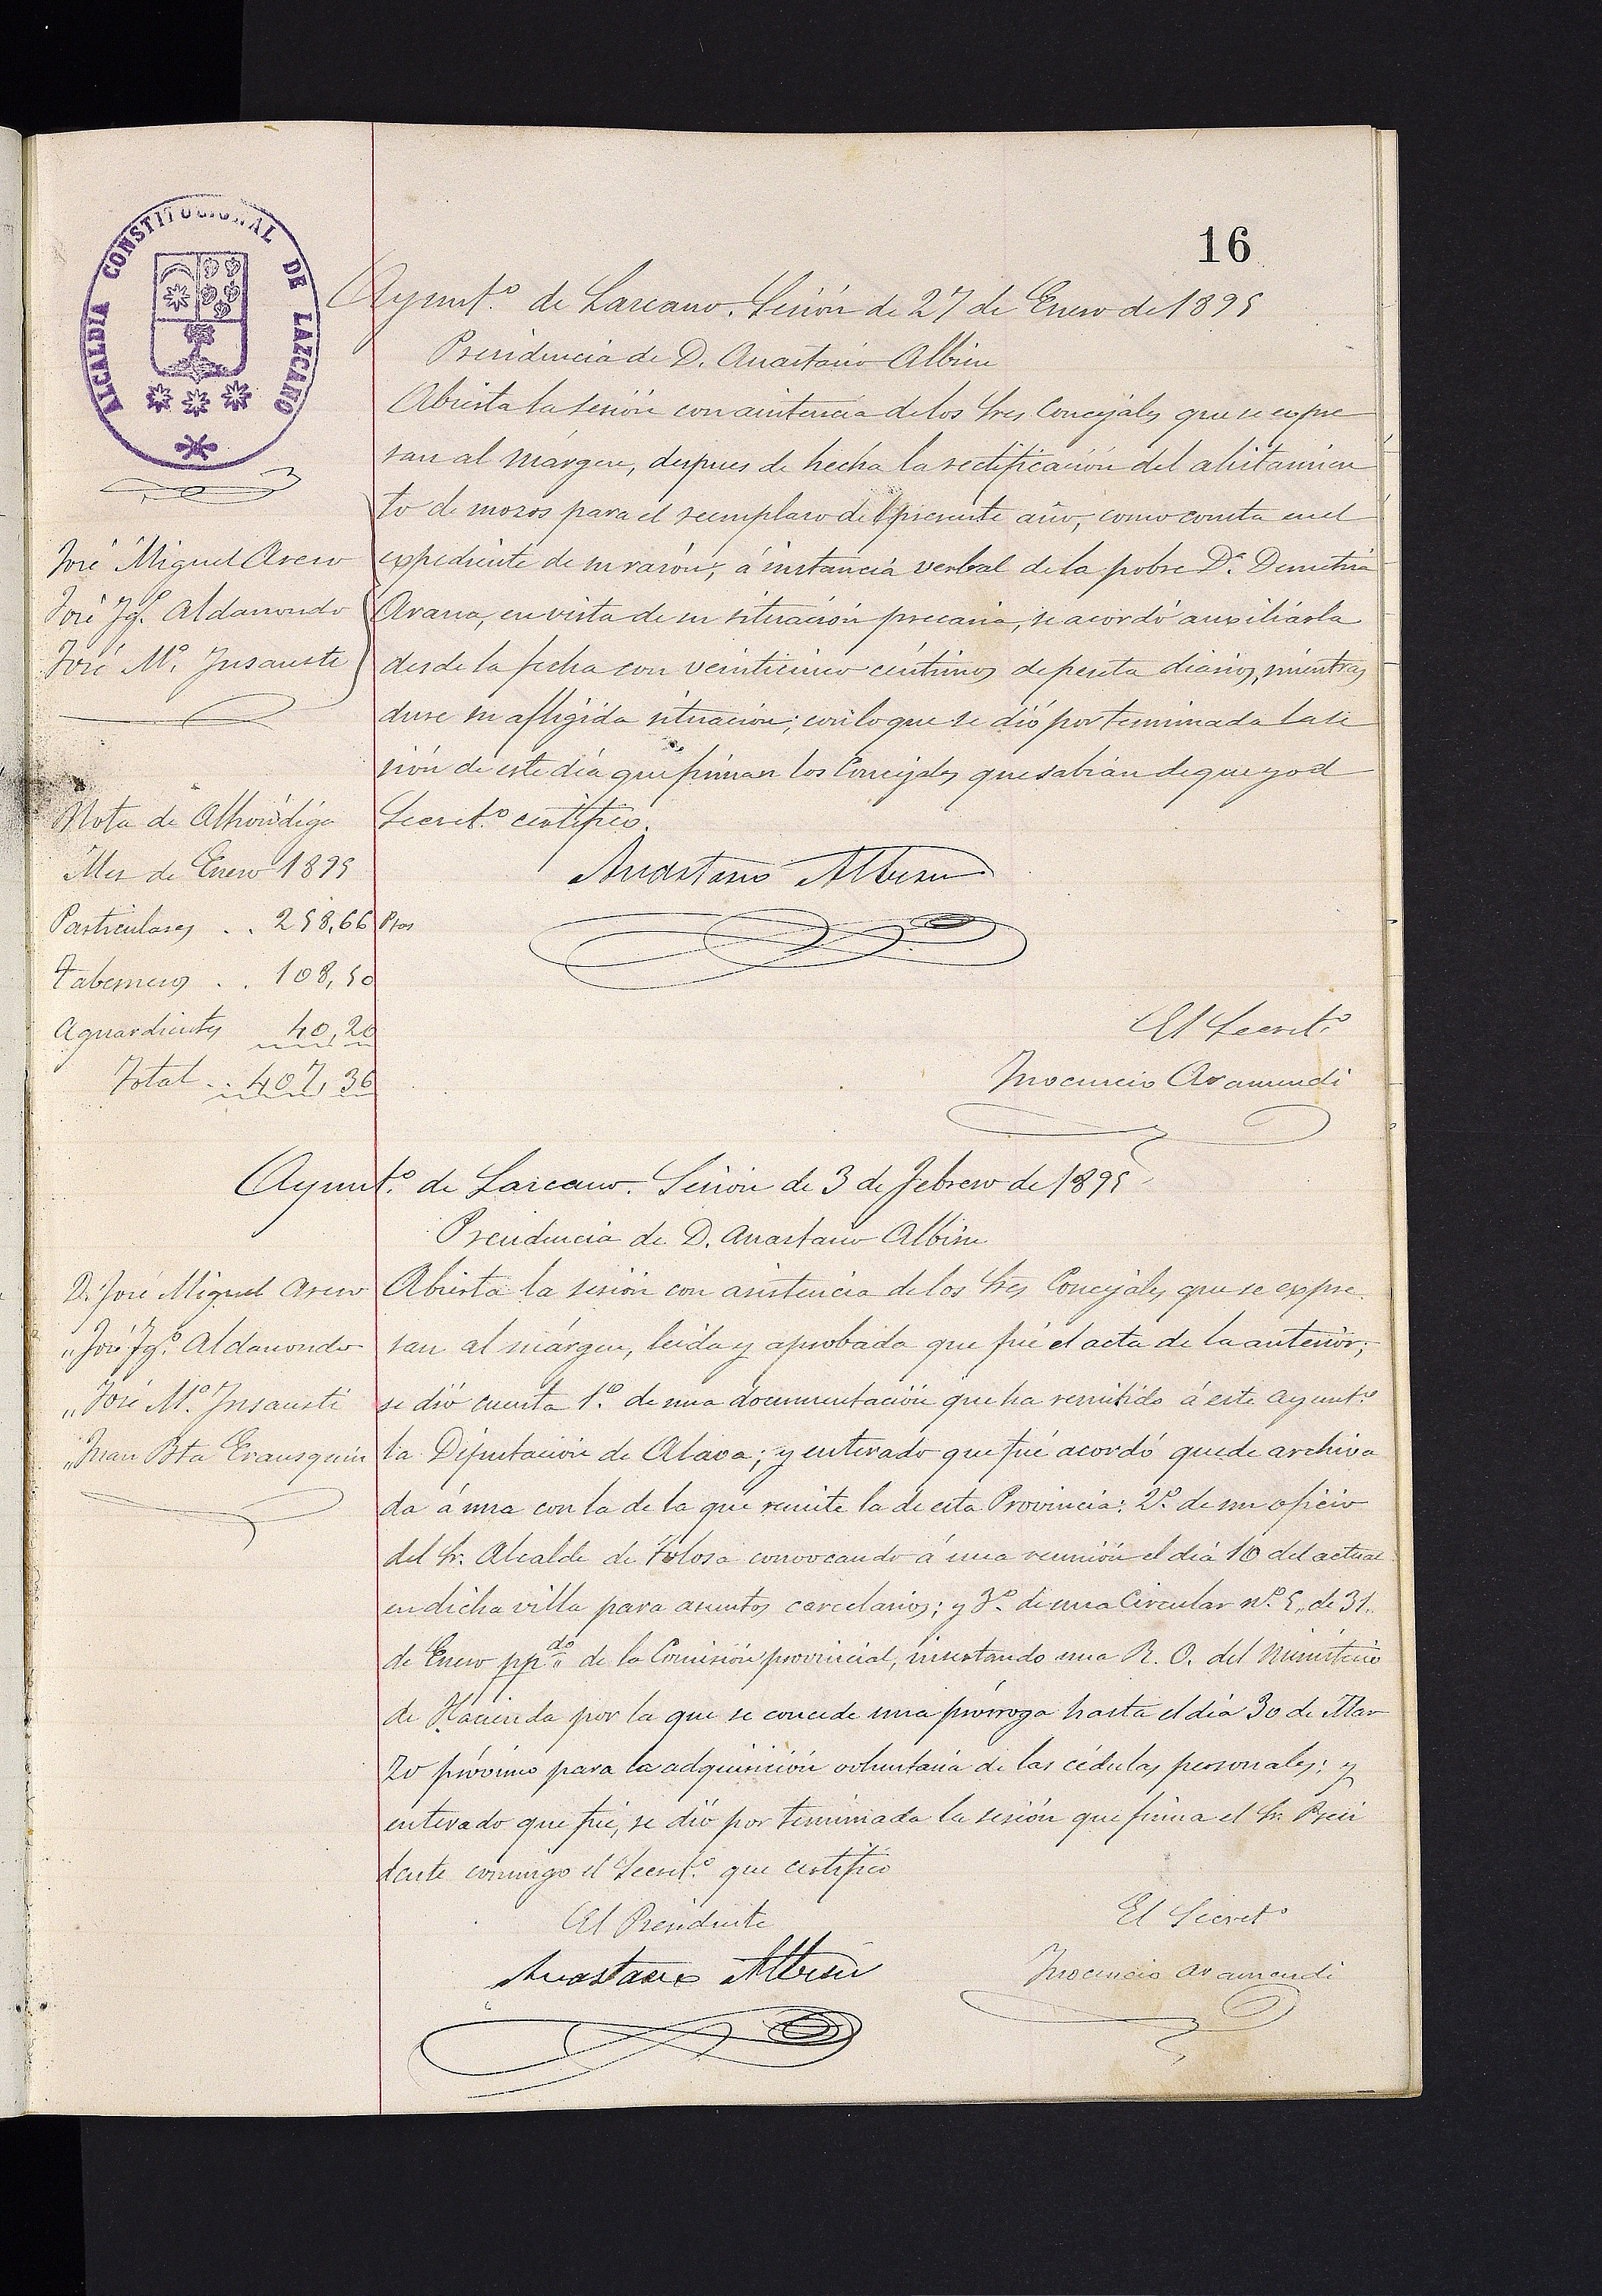 16
ALCALDIA CONSTITUCIONAL DE LAZCANO
Ayunt.º de Lazcano. Sesión de 27 de Enero de 1895
Presidencia de D. Anastasio Albisu
José Miguel Arezo
José Ig.º Aldanondo
José M.ª Insausti
Abierta la sesión con asistencia de los Sres Concejales que se expre
san al márgen, despues de hecha la rectificación del alistamien
to de mozos para el reemplazo del presente año, como consta en el
expediente de su razón; á instancia verbal de la pobre D.ª Demetria
Arana, en vista de su situación precaria, se acordó auxiliárla
desde la fecha con veinticinco céntimos de peseta diarios, mientras
dure su afligida situación; con lo que se dió por terminada la se
sión de este día que firman los Concejales que sabían de que yo el
Secret.º certifico.
Anastasio Albisu
El Secret.º
Inocencio Aramendi
Nota de Alhóndiga
Mes de Enero 1895
Particulares . . 258,66 Ptas
Taberneros . . 108,50
Aguardientes 40,20
Total . . 407,36
Ayunt.º de Lazcano. Sesión de 3 de Febrero de 1895
Presidencia de D. Anastasio Albisu
D. José Miguel Arezo
„ José Ig.º Aldanondo
„ José M.ª Insausti
„ Juan Bta Erausquin
Abierta la sesión con asistencia de los Sres Concejales que se expre
san al márgen, leida y aprobada que fué el acta de la anterior;
se dió cuenta 1.º de una documentación que ha remitido á este Ayunt.º
la Diputación de Alava; y enterado que fué acordó quede archiva
da á una con la de la que remite la de esta Provincia: 2.º de un oficio
del Sr. Alcalde de Tolosa convocando á una reunión el día 10 del actual
en dicha villa para asuntos carcelarios; y 3.º de una Circular n.º 5„ de 31„
de Enero pp.do „ de la Comisión provincial, insertando una R. O. del Ministerio
de Hacienda por la que se concede una prórroga hasta el día 30 de Mar
zo próximo para la adquisición voluntaria de las cédulas personales; y
enterado que fué, se dió por terminada la sesión que firma el Sr. Presi
dente conmigo el Secret.º que certifico
El Presidente
Anastasio Albisu
El Secret.º
Inocencio Aramendi